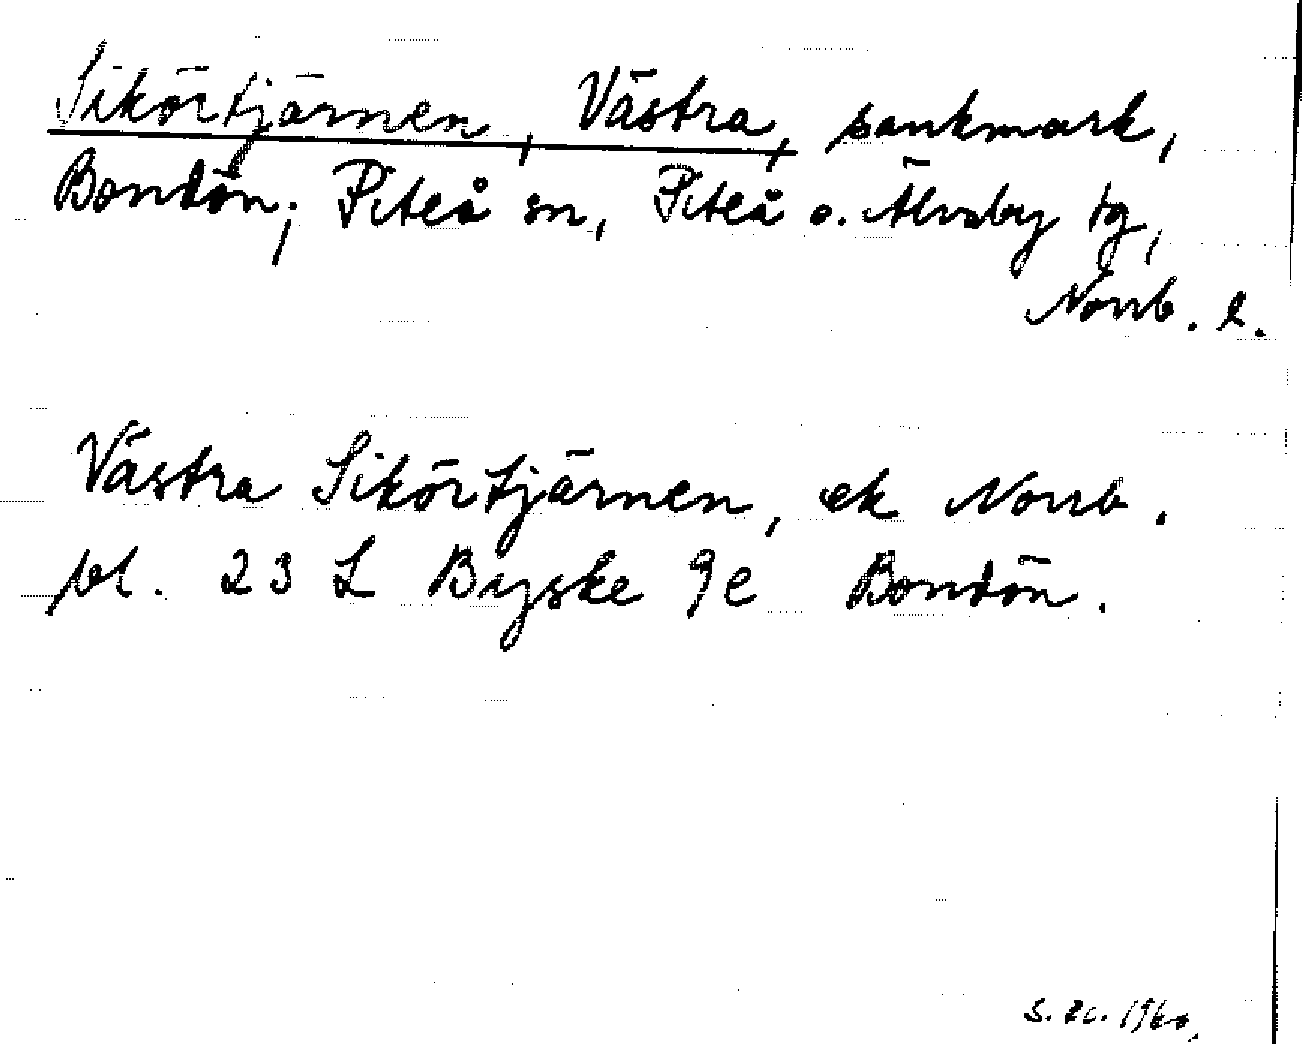 Sikörtjärnen, Västra, sankmark,
Bondön; Piteå sn, Piteå o. Älvsby tg,
Norrb. l.
Västra Sikörtjärnen, ek Norrb.
bl. 23 L Byske 9e Bondön.
1960,